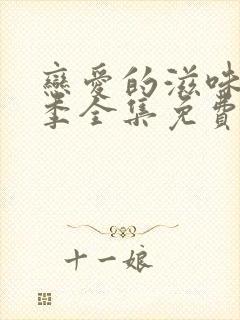 戀愛的滋味
季全集免費
十一娘